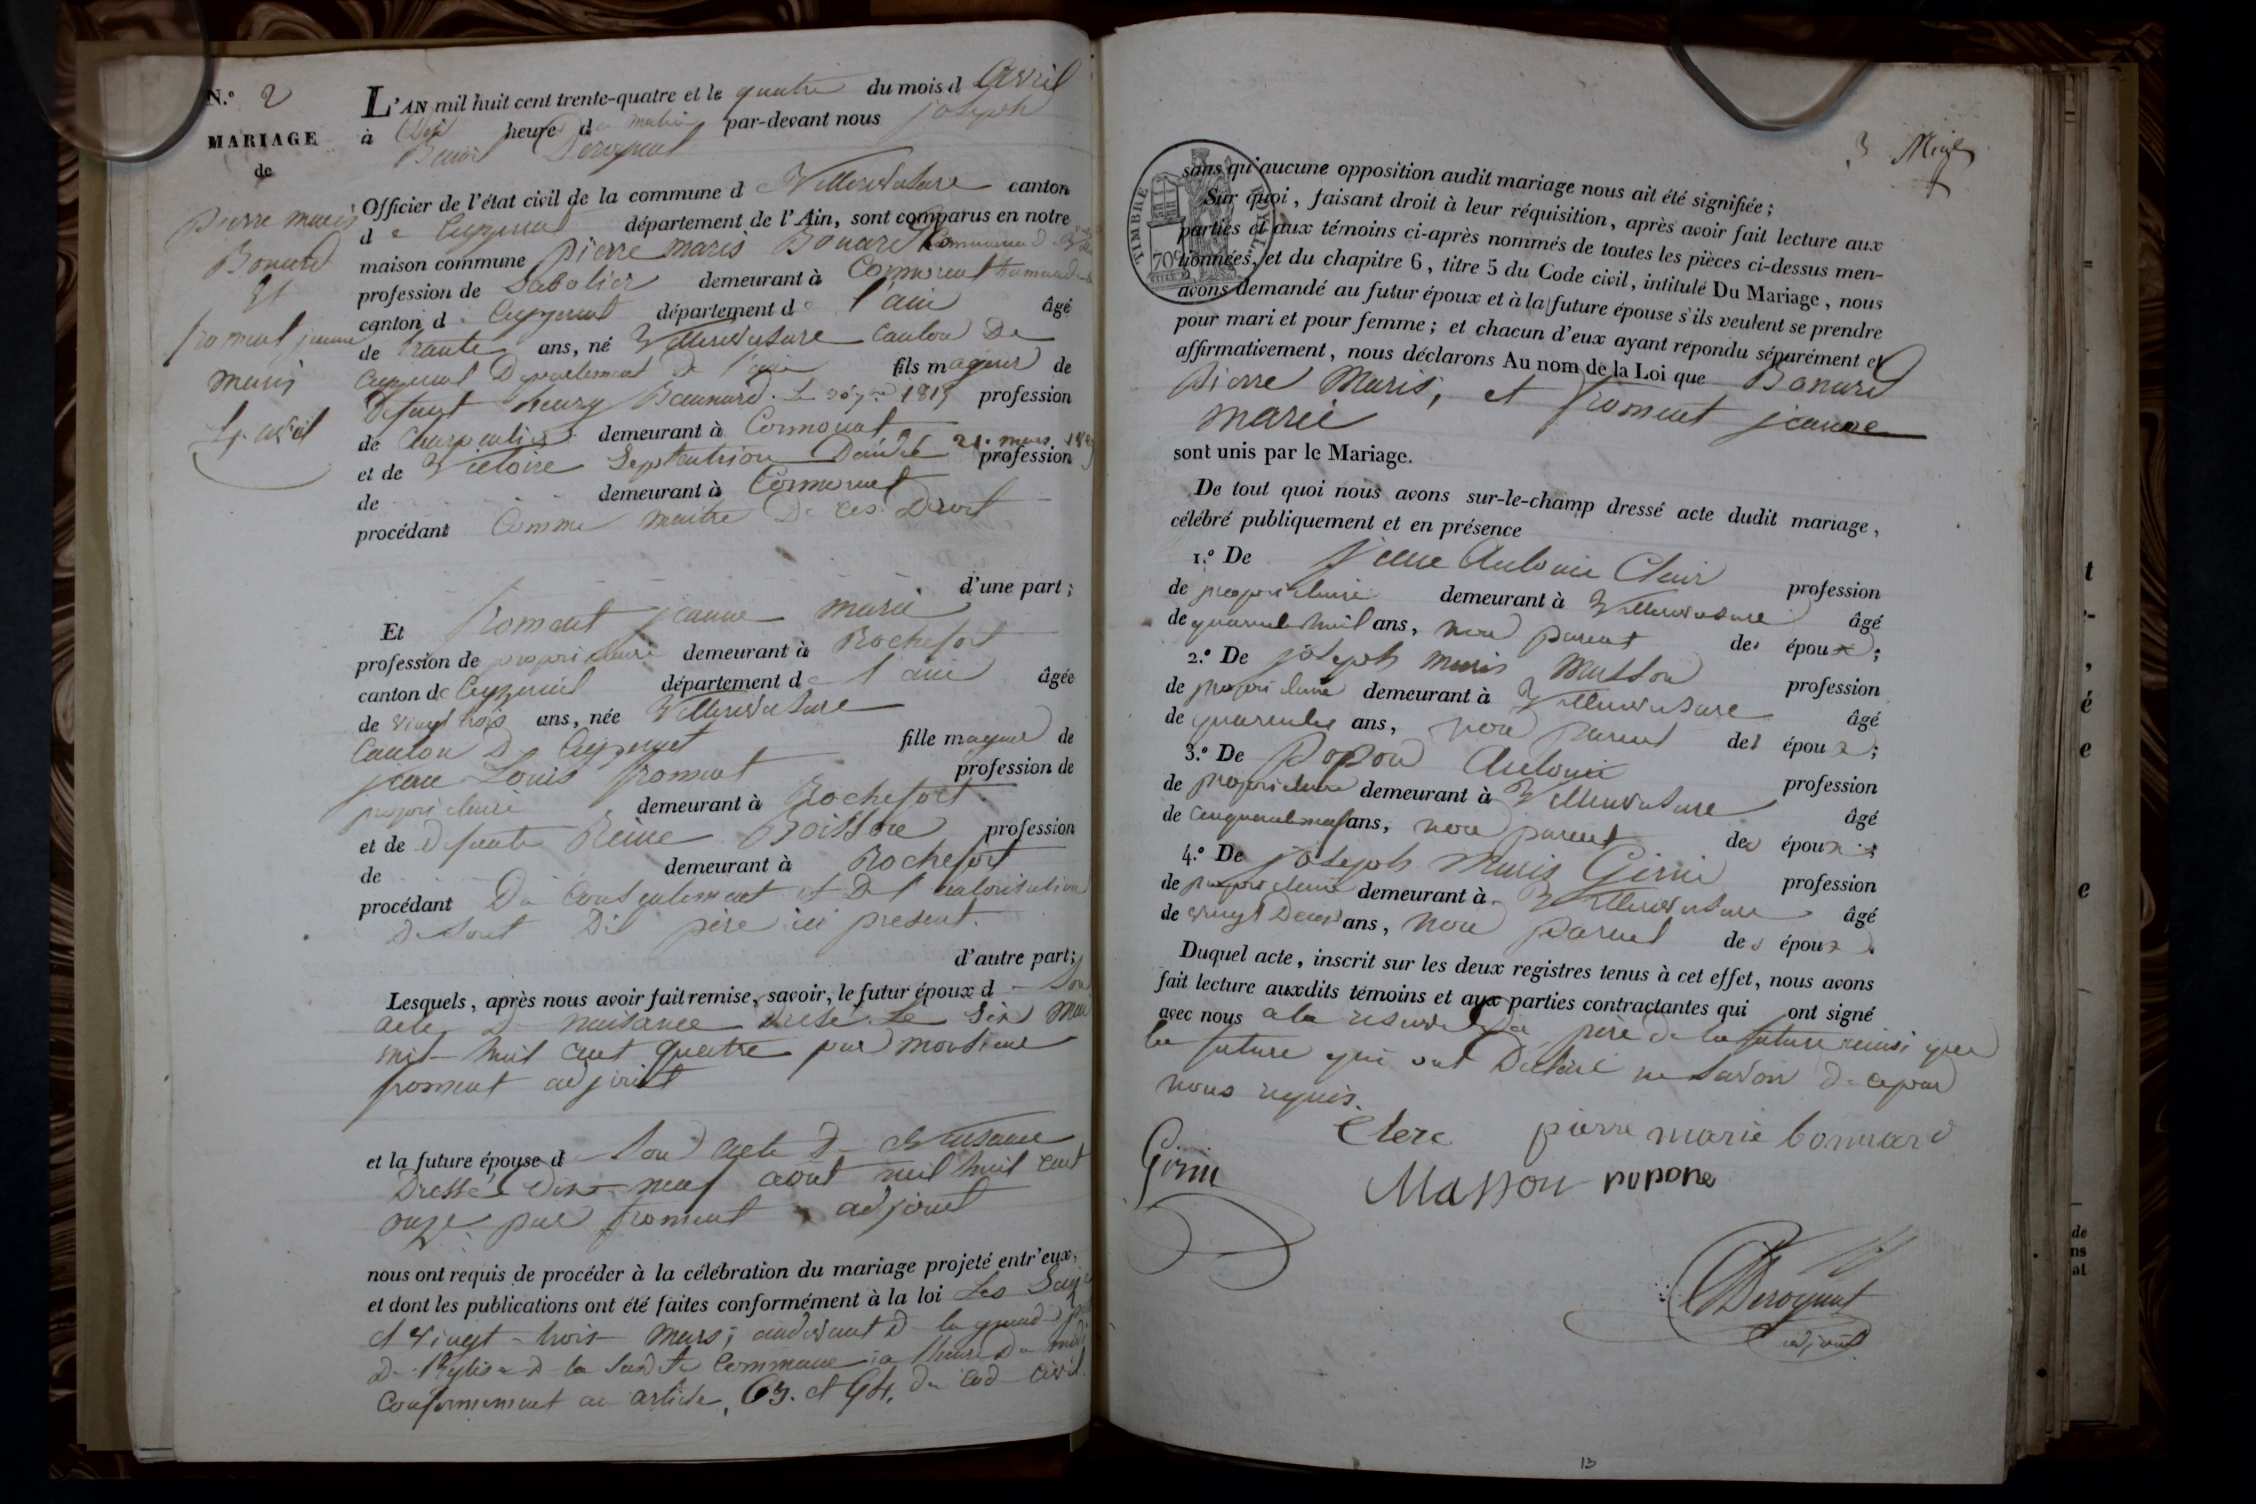 N.º 2
MARIAGE
de
Pierre marie
Bonard
Et
froment jeanne
marie
4. avril
L'AN mil huit cent trente-quatre et le quatre du mois d avril
à dix heure du matin par-devant nous joseph
Deroguat
Officier de l'état civil de la commune d Villereversure canton
de Ceyzeriat département de l'Ain, sont comparus en notre
maison commune pierre marie Bonard
profession de Sabotier demeurant à
canton de Ceyzeriat département de l'ain âgé
de trante ans, né Villereversure canton De
Ceyzeriat Departement De l'ain fils mageur de
Defunt henry Bonnard. 1815 profession
de Charpentier demeurant à
et de Victoire Septentrion Décédée 21. mars profession
de demeurant à
procédant Comme maitre De ces Droit
d'une part ;
Et froment jeanne marie
profession de propriétaire demeurant à Rochefort
canton de Ceyzeriat département de l'ain âgée
de vingt trois ans, née Villereversure
Canton De Ceyzeriat fille mageur de
jean Louis froment profession de
propriétaire demeurant à Rochefort
et de defunte Reine profession
de demeurant à Rochefort
procédant Du consentement et De l'autorisation
De Sont Dit père ici présent.
d'autre part ;
Lesquels, après nous avoir fait remise, savoir, le futur époux de Son
acte de naisance dressé Le Six Mai
mil huit cent quatre par monsieur
froment adjoint
et la future épouse de Son acte de Naisance
Dressé Dix-neuf aout mil huit cent
onze par froment adjoint
nous ont requis de procéder à la célébration du mariage projeté entr'eux,
et dont les publications ont été faites conformément à la loi Les Seize
et vingt-trois Mars ; audevant de la grande
de l'Eglise de la Susdite Commune a l'heure Du midi
Conformement au article, 63. et 64. du cod civil.
3 Mige
TIMBRE ROYAL
70c
sans qu'aucune opposition audit mariage nous ait été signifiée ;
Sur quoi, faisant droit à leur réquisition, après avoir fait lecture aux
parties et aux témoins ci-après nommés de toutes les pièces ci-dessus men-
tionnées, et du chapitre 6, titre 5 du Code civil, intitulé Du Mariage, nous
avons demandé au futur époux et à la future épouse s'ils veulent se prendre
pour mari et pour femme ; et chacun d'eux ayant répondu séparément et
affirmativement, nous déclarons Au nom de la Loi que Bonard
Pierre Marie, et froment jeanne
marie
sont unis par le Mariage.
De tout quoi nous avons sur-le-champ dressé acte dudit mariage,
célébré publiquement et en présence
1.º De jean Antoine Clair profession
de propriétaire demeurant à Villereversure âgé
de quarante huit ans, non parent des époux ;
2.º De joseph marie Masson profession
de propriétaire demeurant à Villereversure âgé
de quarante ans, non parent des époux ;
3.º De Popon Antoine profession
de propriétaire demeurant à Villereversure âgé
de cinquante neuf ans, non parent des époux ;
4.º De joseph Marie Girin profession
de propriétaire demeurant à Villereversure âgé
de vingt Deux ans, non parent des époux.
Duquel acte, inscrit sur les deux registres tenus à cet effet, nous avons
fait lecture auxdits témoins et aux parties contractantes qui ont signé
avec nous a la reserve du père de la future ainsi que
la future qui ont Déclaré ne Savoir de ce par
nous requis.
Clerc pierre marie bonnard
Girin Masson popone
Deroguat
adjoint
13